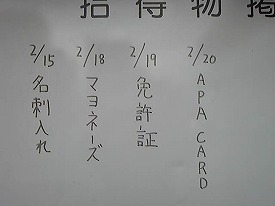 拾得物掲
2/15
名刺入れ
2/18
マヨネーズ
2/19
免許証
2/20
APA CARD